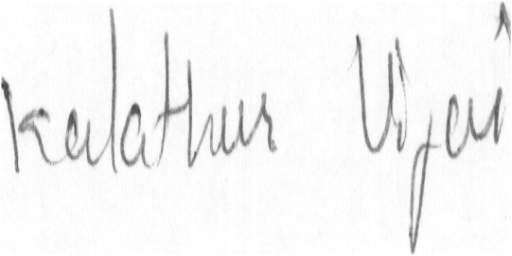 Kalathur Vijai